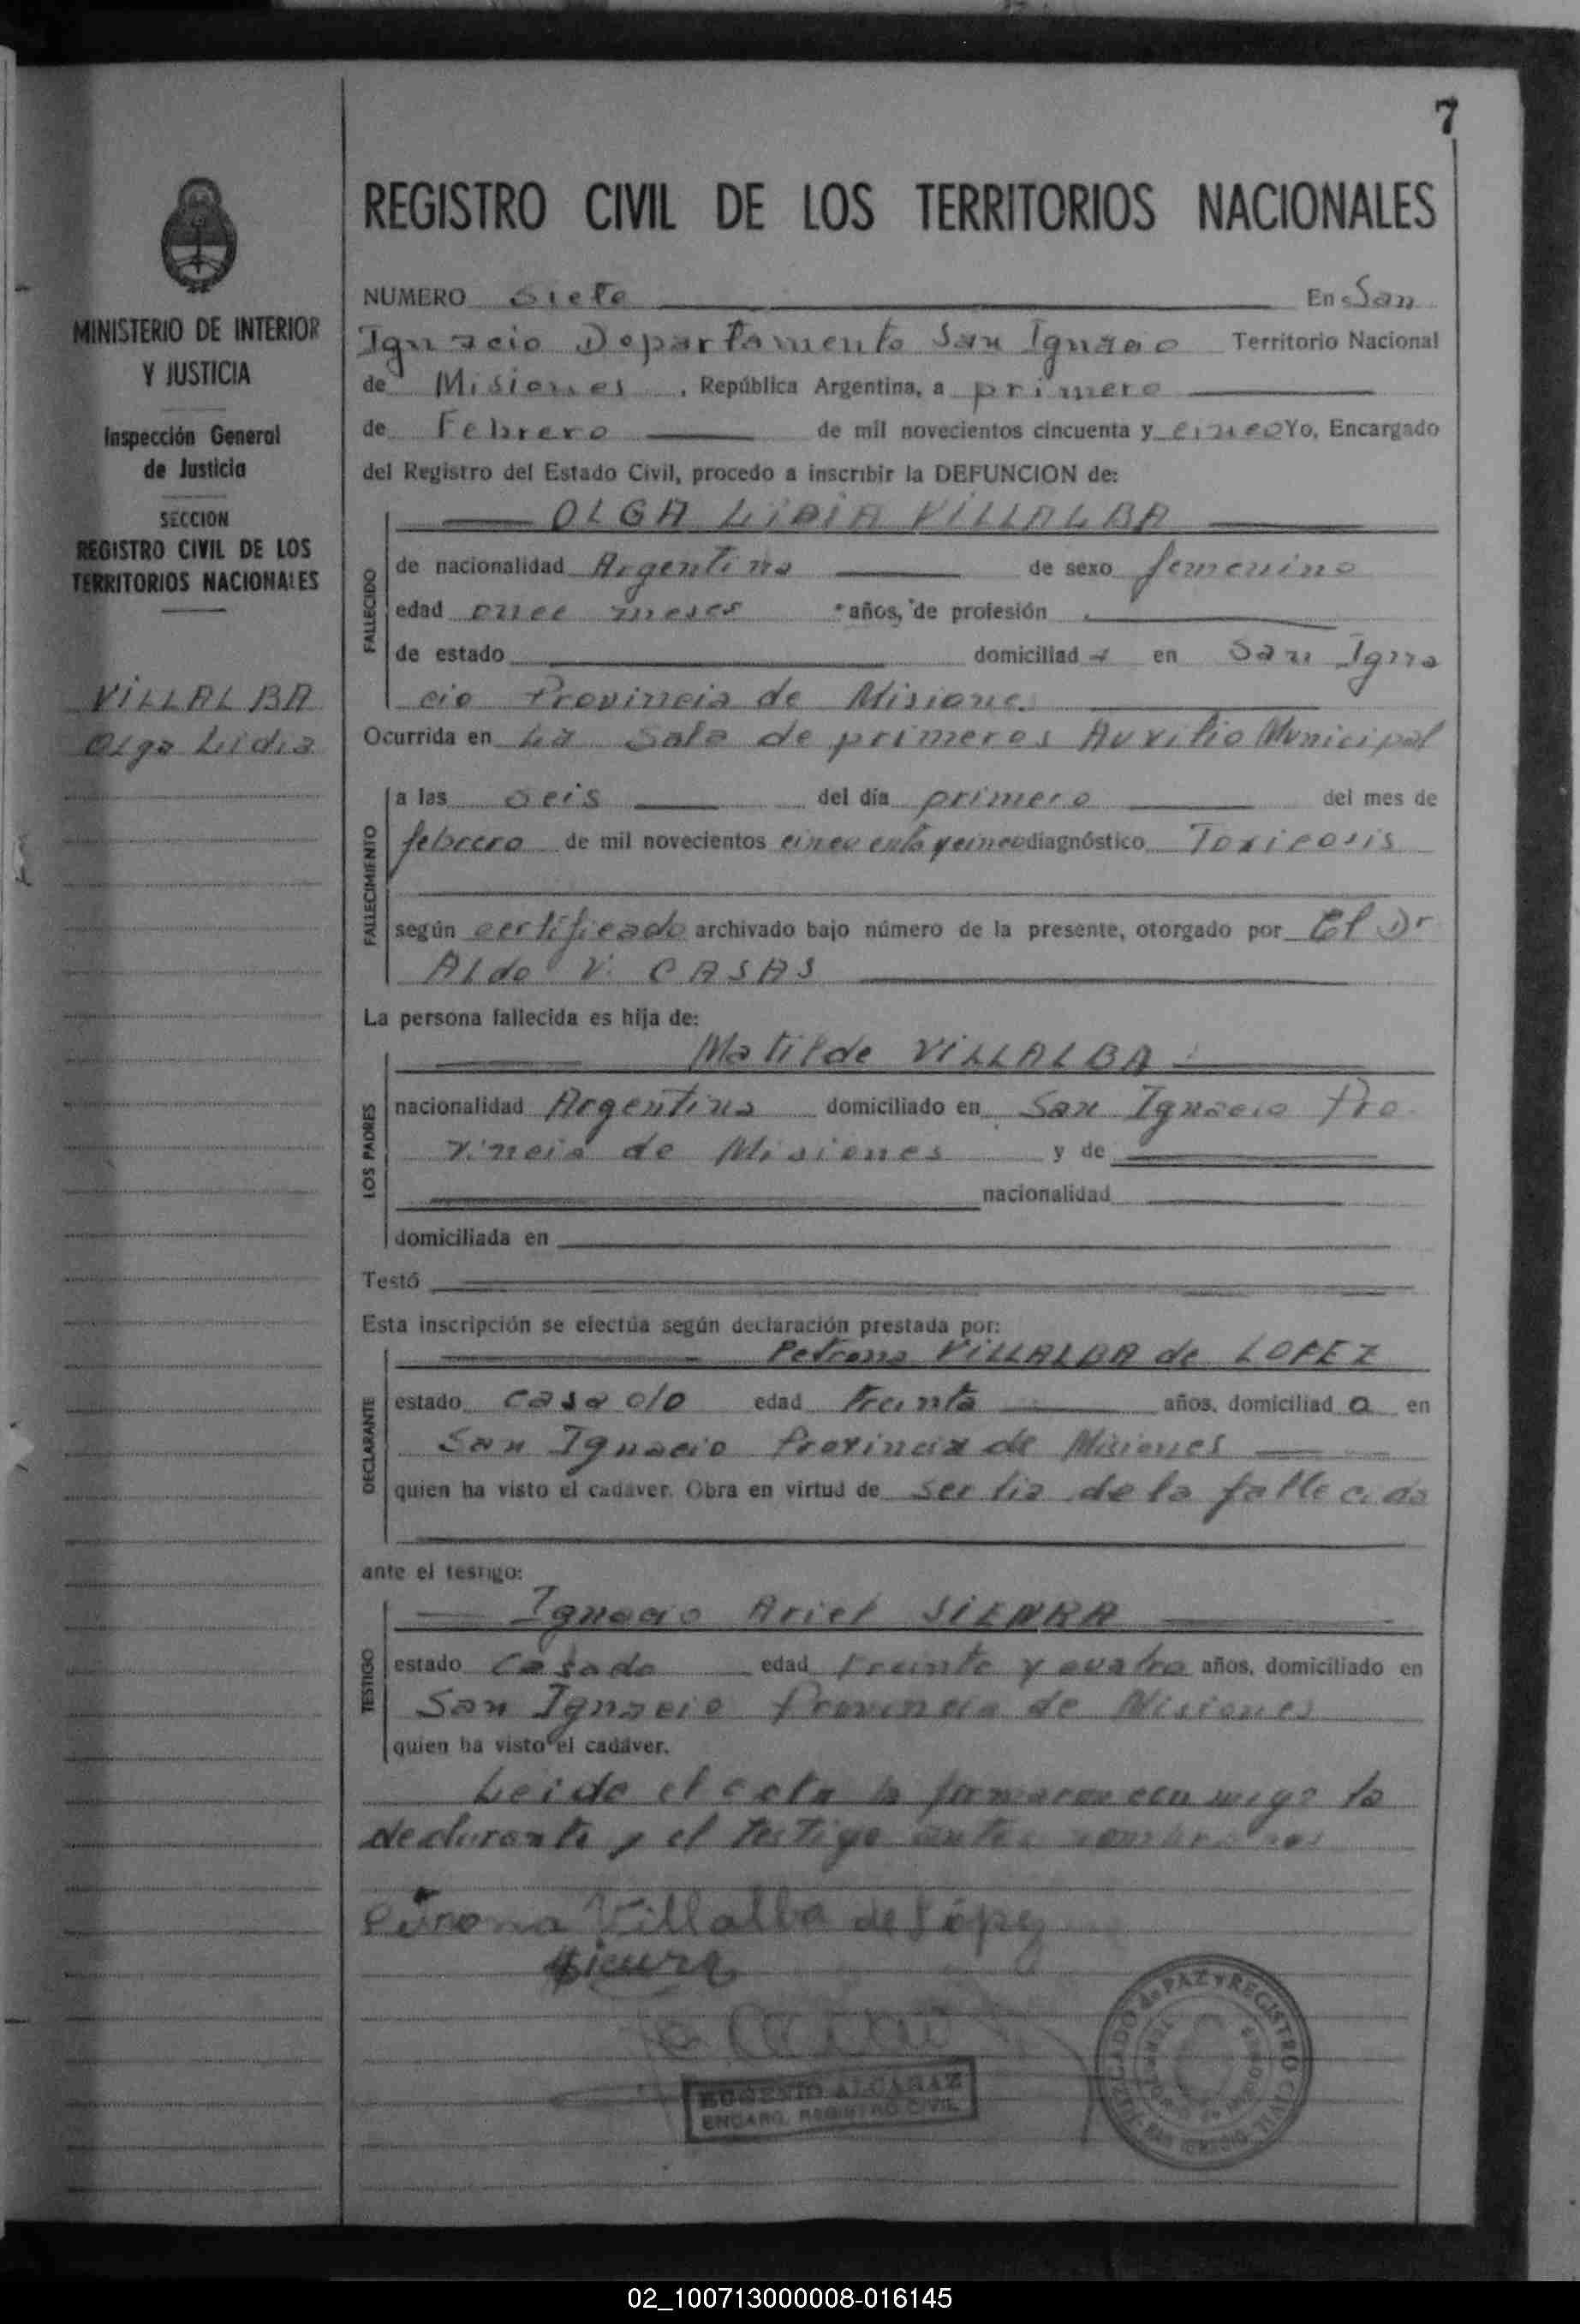 7
REGISTRO CIVIL DE LOS TERRITORIOS NACIONALES
MINISTERIO DE INTERIOR
Y JUSTICIA
Inspección General
de Justicia
SECCION
REGISTRO CIVIL DE LOS
TERRITORIOS NACIONALES
VILLALBA
Olga Lidia
NUMERO Siete En San
Ignacio Departamento San Ignacio Territorio Nacional
de Misiones, República Argentina, a primero
de Febrero de mil novecientos cincuenta y cinco Yo, Encargado
del Registro del Estado Civil, procedo a inscribir la DEFUNCION de:
OLGA LIDIA VILLALBA
FALLECIDO
de nacionalidad Argentina de sexo femenino
edad once meses años, de profesión
de estado domiciliada en San Igna
cio Provincia de Misiones
Ocurrida en La Sala de primeros Auxilio Municipal
FALLECIMIENTO
a las seis del día primero del mes de
febrero de mil novecientos cincuenta y cinco diagnóstico Toxicosis
según certificado archivado bajo número de la presente, otorgado por El Dr
Aldo V. CASAS
La persona fallecida es hija de:
Matilde VILLALBA
LOS PADRES
nacionalidad Argentina domiciliado en San Ignacio Pro
vincia de Misiones y de
nacionalidad
domiciliada en
Testó
Esta inscripción se efectúa según declaración prestada por:
Petrona VILLALBA de LOPEZ
DECLARANTE
estado casado edad treinta años, domiciliada en
San Ignacio Provincia de Misiones
quien ha visto el cadáver. Obra en virtud de ser tia de la fallecida
ante el testigo:
Ignacio Ariel SIERRA
TESTIGO
estado Casado edad treinta y cuatro años, domiciliado en
San Ignacio Provincia de Misiones
quien ha visto el cadáver.
Leida el acta la firmaron conmigo la
declarante y el testigo antes nombrados
Petrona Villalba de López
EUGENIO ALCARAZ
ENCARG. REGISTRO CIVIL
JUZGADO de PAZ Y REGISTRO CIVIL
SAN IGNACIO
02_100713000008-016145